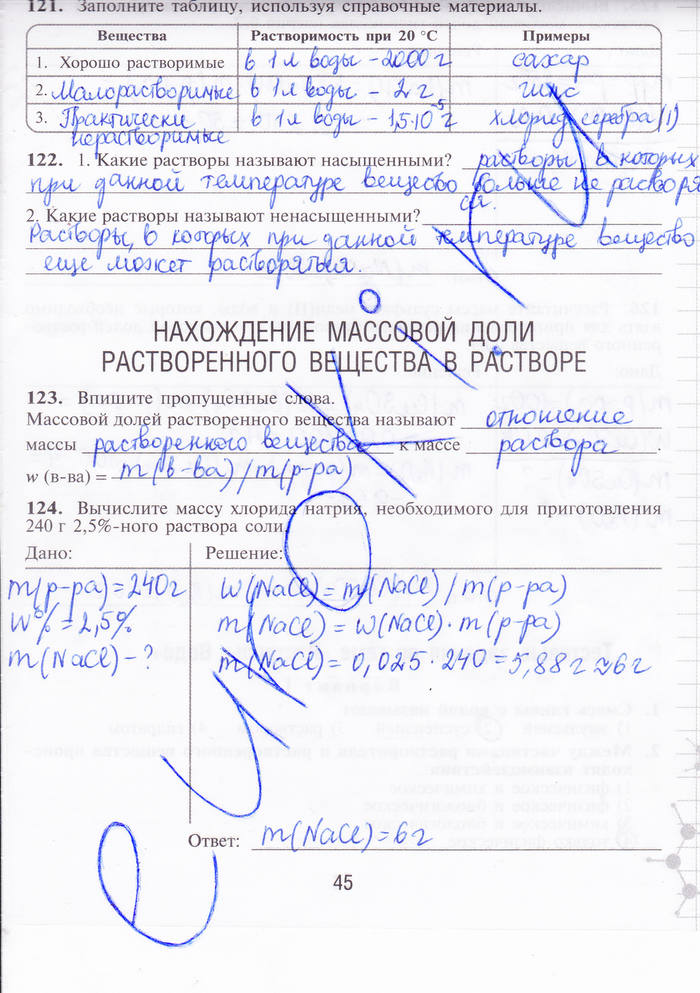 121. Заполните таблицу, используя справочные материалы.
Вещества Растворимость при 20 °С Примеры
1. Хорошо растворимые в 1 л воды – 2000 г сахар
2. Малорастворимые в 1 л воды – 2 г гипс
3. Практически нерастворимые в 1 л воды – 1,5·10⁻⁵ г хлорид серебра (I)
122. 1. Какие растворы называют насыщенными? растворы в которых
при данной температуре вещество больше не растворя
ся.
2. Какие растворы называют ненасыщенными?
Растворы, в которых при данной температуре вещество
еще может растворяться.
НАХОЖДЕНИЕ МАССОВОЙ ДОЛИ
РАСТВОРЕННОГО ВЕЩЕСТВА В РАСТВОРЕ
123. Впишите пропущенные слова.
Массовой долей растворенного вещества называют отношение
массы растворенного вещества к массе раствора.
w (в-ва) = m(в-ва) / m(р-ра)
124. Вычислите массу хлорида натрия, необходимого для приготовления
240 г 2,5%-ного раствора соли.
Дано: Решение:
m(р-ра) = 240г w(NaCl) = m(NaCl) / m(р-ра)
W% = 2,5% m(NaCl) = w(NaCl) · m(р-ра)
m(NaCl) – ? m(NaCl) = 0,025 · 240 = 5,88 г ≈ 6 г
Ответ: m(NaCl) = 6 г
45